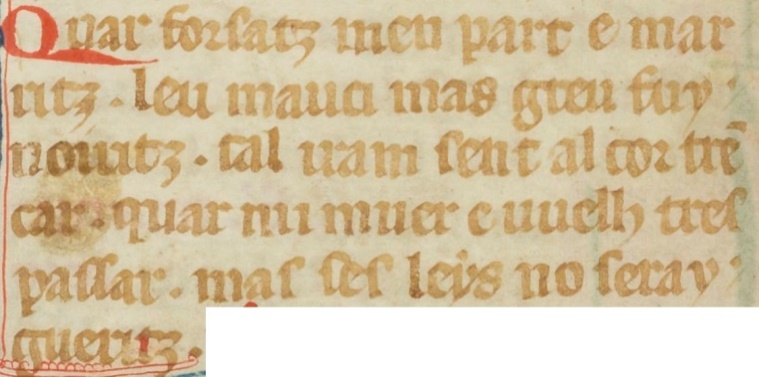 Quar forsatz men part e mar
ritz . leu mauci mas greu fuy
nouitz . cal uam sent al cor trē
car . quar mi muer e uuelh tres
passar . mas ses leys no seray
gueritz .